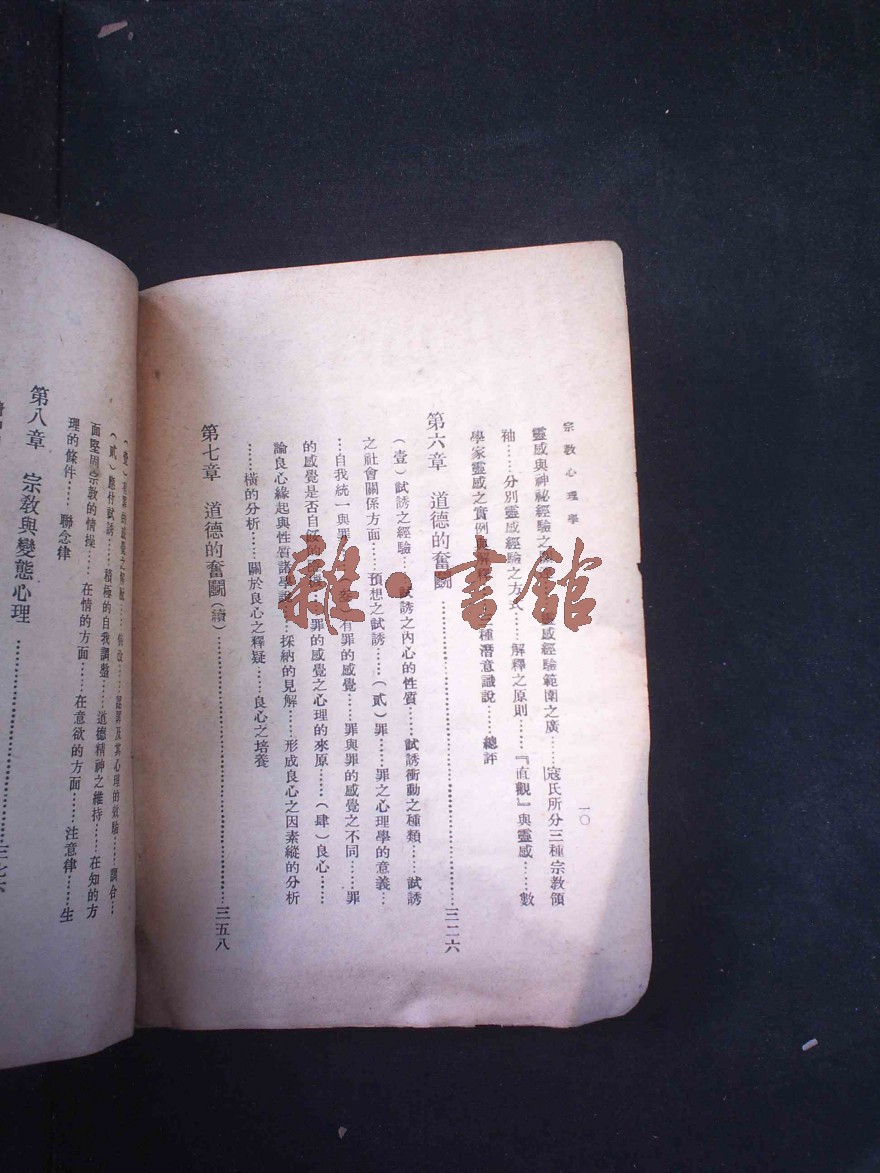 宗教心理學
一〇
靈感與神祕經驗之 感經驗範圍之廣……寇氏所分三種宗教領
袖……分別靈感經驗之方式……解釋之原則……『直觀』與靈感……數
學家靈感之實例 種潛意識說……總評
第六章 道德的奮鬭……三二六
(壹)試誘之經驗……試誘之內心的性質……試誘衝動之種類……試誘
之社會關係方面……預想之試誘……(貳)罪……罪之心理學的意義…
…自我統一與罪 有罪的感覺……罪與罪的感覺之不同……罪
的感覺是否自 罪的感覺之心理的來原……(肆)良心……
論良心緣起與性質諸學說……採納的見解……形成良心之因素縱的分析
……橫的分析……關於良心之釋疑……良心之培養
第七章 道德的奮鬭(續)……三五八
罪的感覺之 認罪及其心理的效驗
(貳)應付試誘……積極的自我調整……道德精神之維持……在知的方
面堅固宗教的情操……在情的方面……在意欲的方面……注意律……生
理的條件……聯念律
第八章 宗教與變態心理……三七六
雜·書館